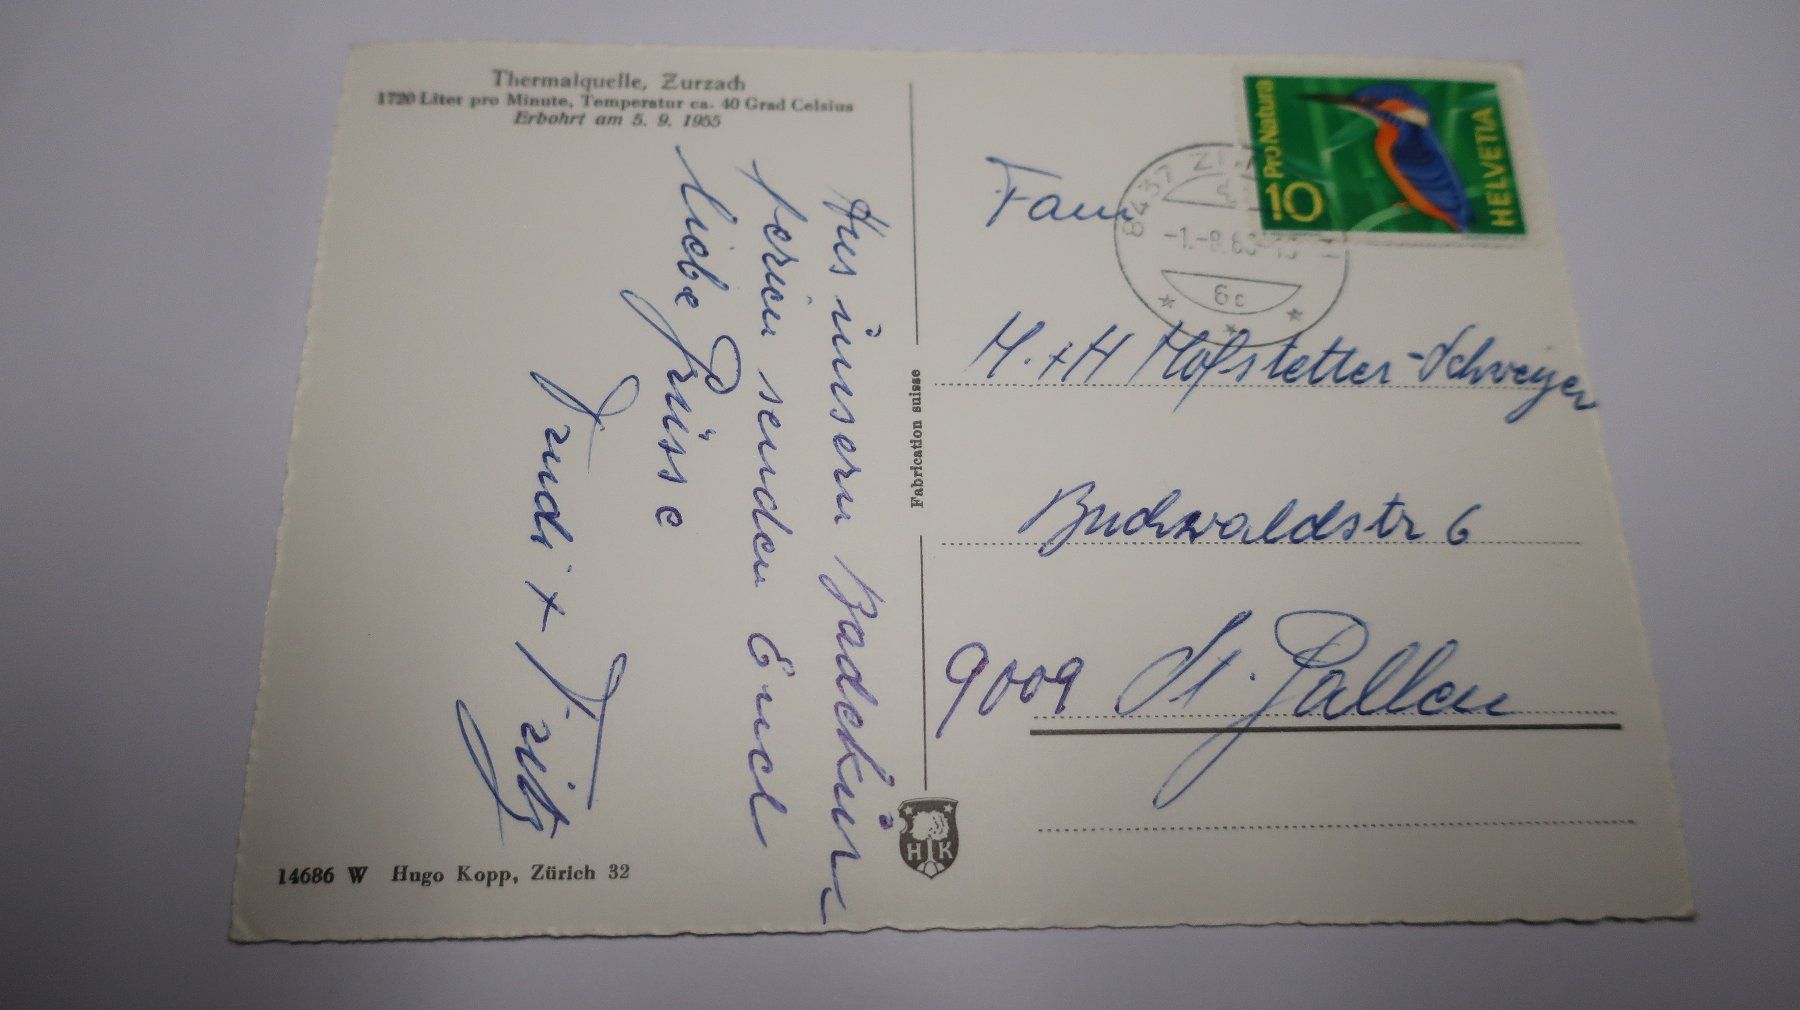 Thermalquelle, Zurzach
1720 Liter pro Minute, Temperatur ca. 40 Grad Celsius
Erbohrt am 5. 9. 1955
Aus unsern Badekur
ferien senden Euch
liebe Grüsse
Trudi + Fritz
14686 W Hugo Kopp, Zürich 32
Fabrication suisse
H K
Pro Natura
10
HELVETIA
8437
6c
Fam
H. + H Hofstetter-Schweizer
Buchwaldstr 6
9009 St. Gallen